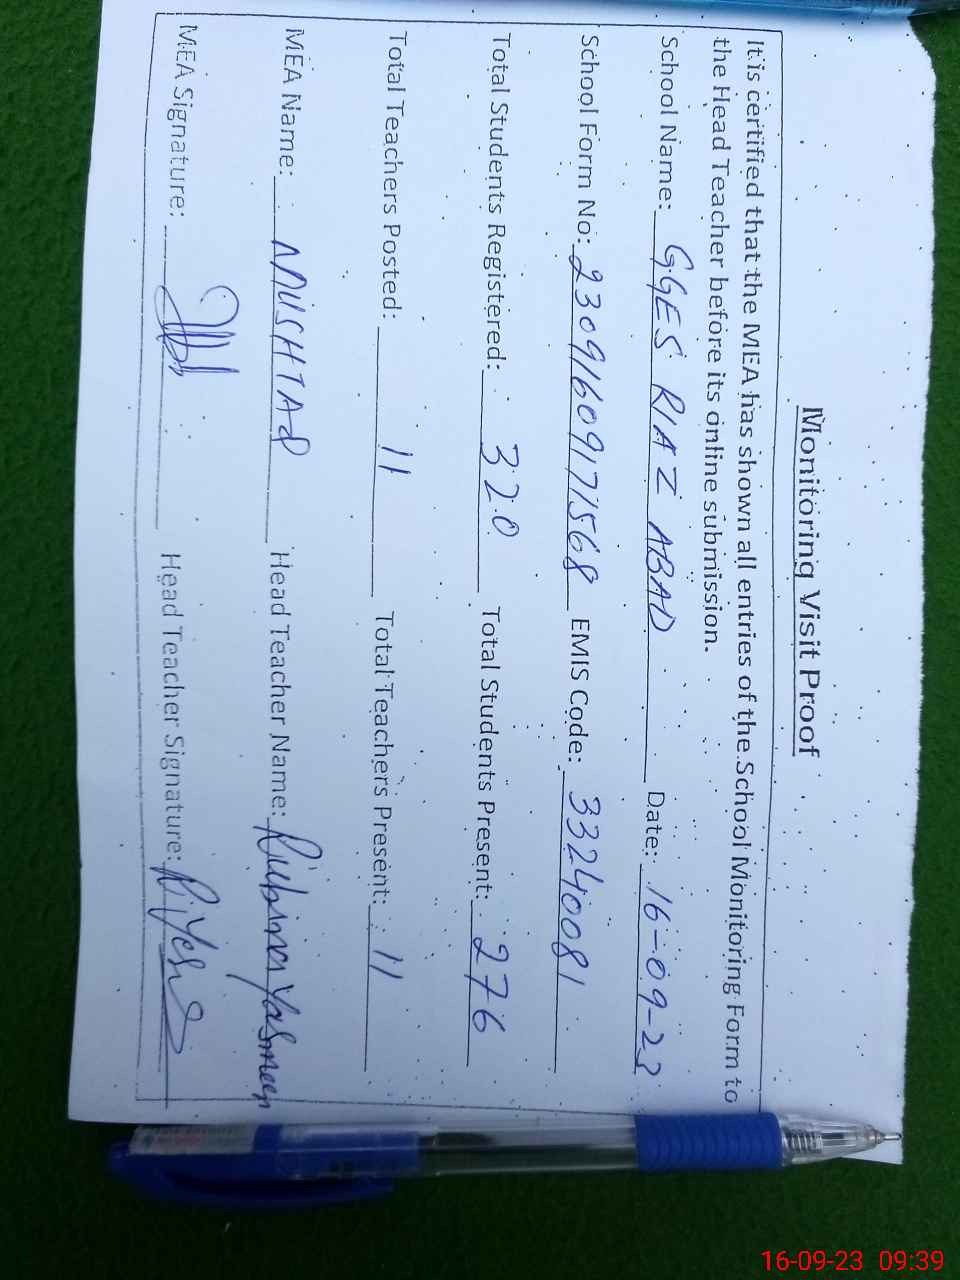 Monitoring Visit Proof
It is certified that the MEA has shown all entries of the School Monitoring Form to
the Head Teacher before its online submission.
School Name: GGES RIAZ ABAD Date: 16-09-23
School Form No: 23091609171568 EMIS Code: 33240081
Total Students Registered: 320 Total Students Present: 276
Total Teachers Posted: 11 Total Teachers Present: 11
MEA Name: MUSHTAQ Head Teacher Name: Rubina Yasmeen
MEA Signature: Head Teacher Signature:
16-09-23 09:39